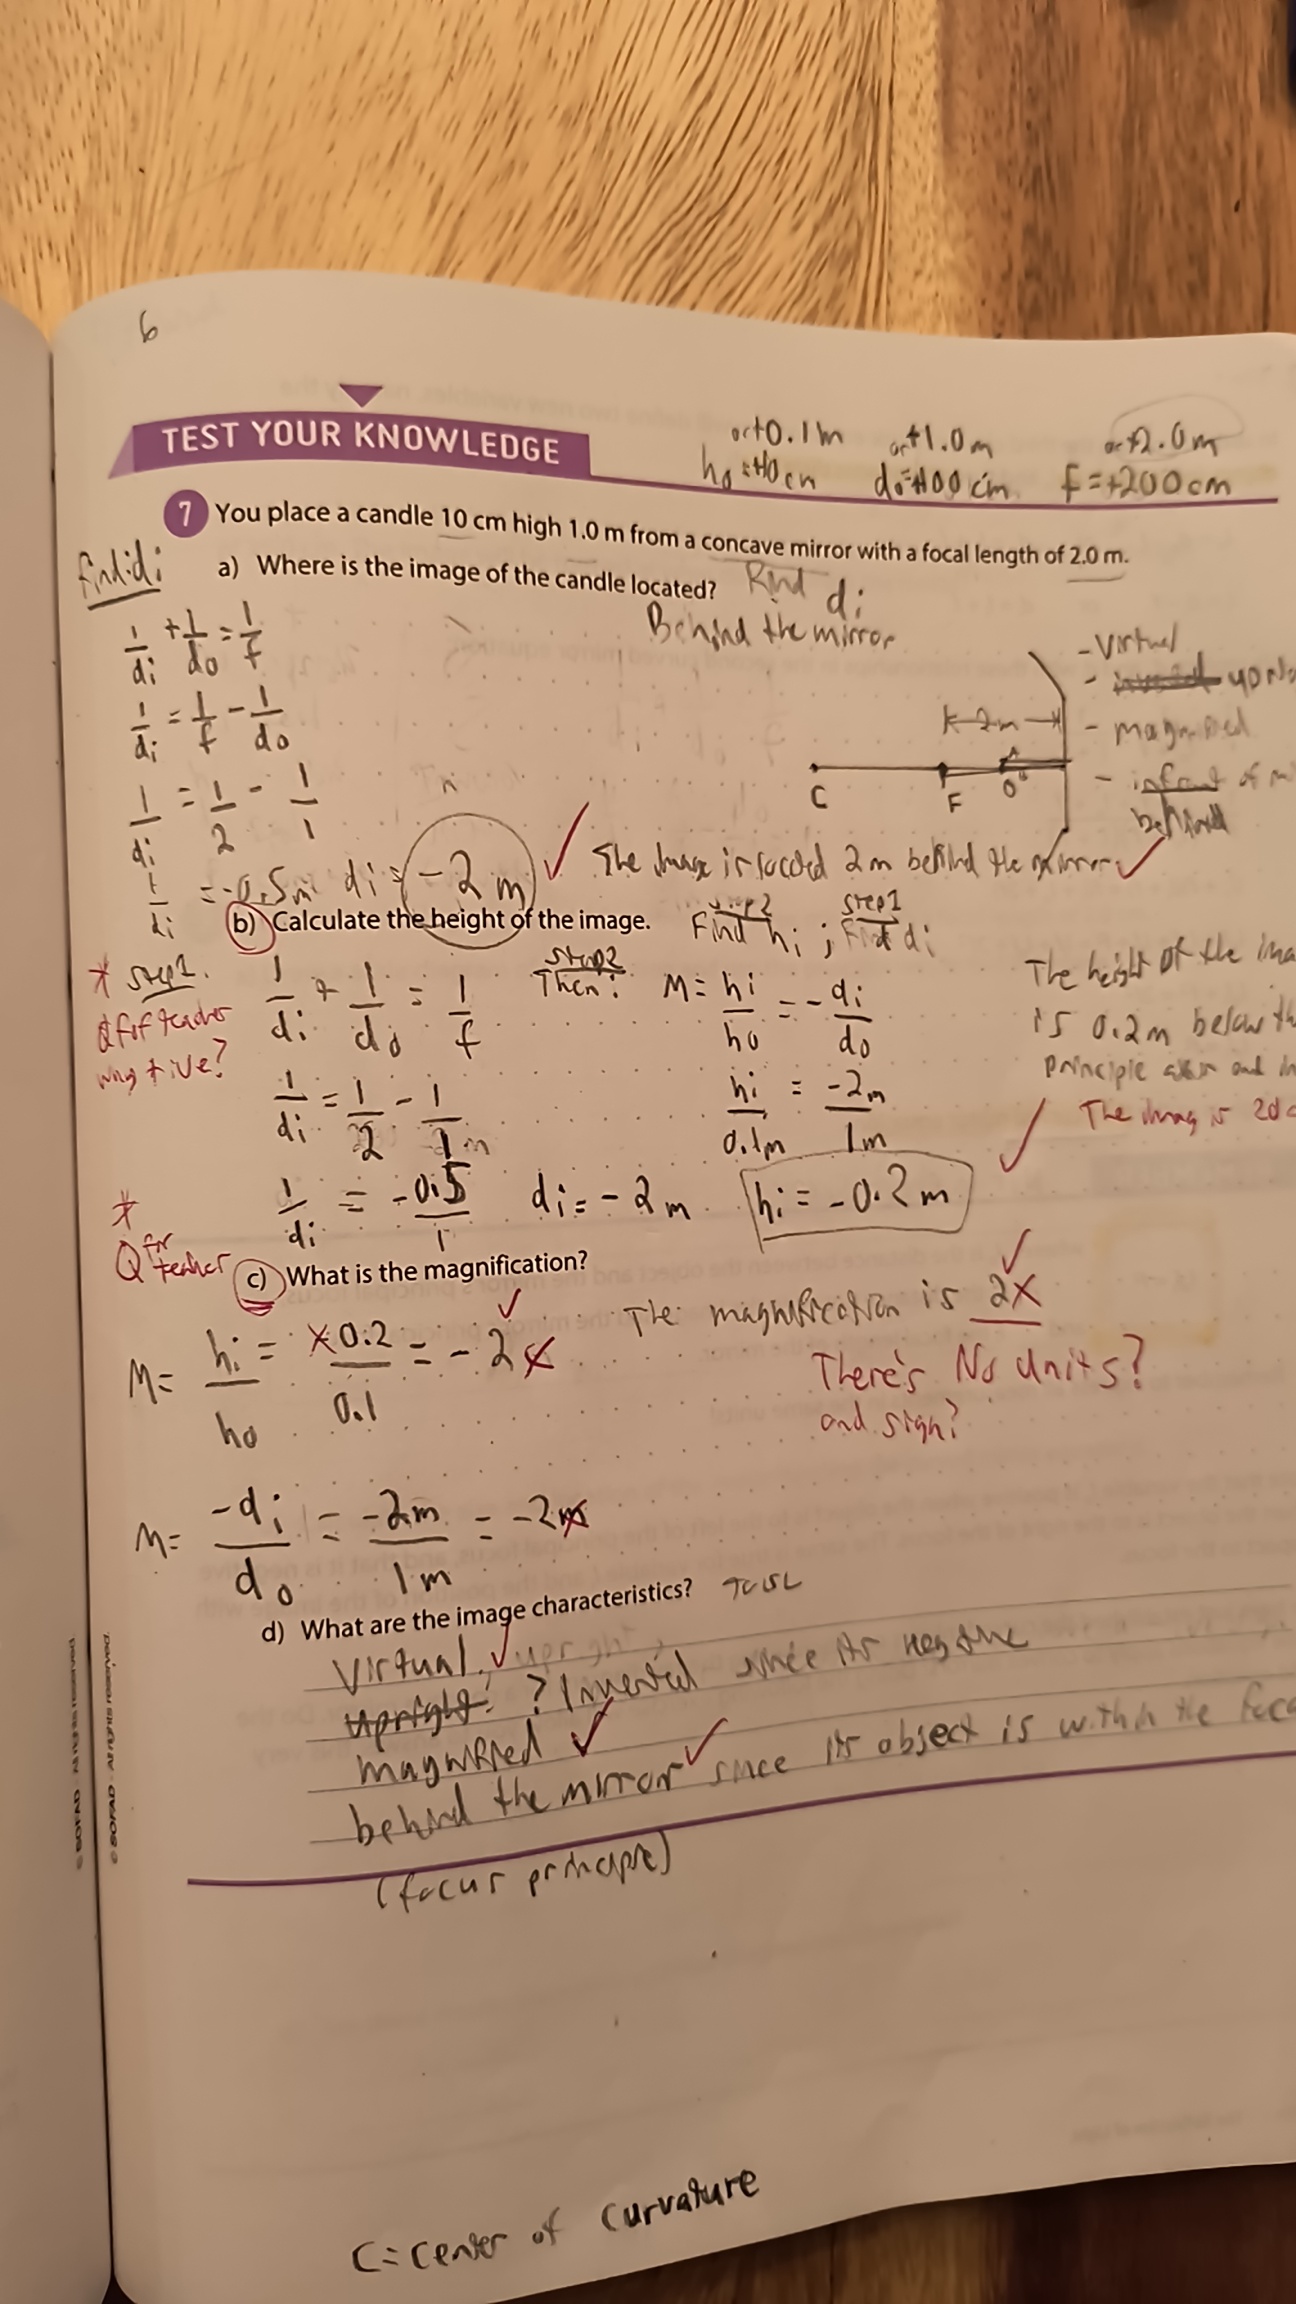 6
TEST YOUR KNOWLEDGE
or +0.1m or +1.0m or +2.0m
ho = +10cm do = +100cm f = +200cm
7 You place a candle 10 cm high 1.0 m from a concave mirror with a focal length of 2.0 m.
find: di
a) Where is the image of the candle located? Find di
Behind the mirror
1/di + 1/do = 1/f
1/di = 1/f - 1/do
1/di = 1/2 - 1/1
1/di = -0.5m di = -2m
- Virtual
- magnified
- infront of m
behind
2m
C F O
The image is located 2m behind the mirror
b) Calculate the height of the image.
step2 step1
Find hi ; Find di
* step1.
Q for teacher
why +ive?
1/di + 1/do = 1/f
1/di = 1/2 - 1/1m
1/di = -0.5/1 di = -2m
step2
Then: M = hi/ho = -di/do
hi/0.1m = -2m/1m
hi = -0.2m
The height of the ima
is 0.2m below th
principle axis and in
The imag is 20c
*
Q for teacher
c) What is the magnification?
M = hi/ho = 0.2/0.1 = -2
The magnification is 2x
There's No units?
and sign?
M = -di/do = -2m/1m = -2m
d) What are the image characteristics?
Virtual, upright,
upright. ? Inverted since its negative
magnified
behind the mirror since its object is within the foca
(focus principle)
C = center of curvature
© SOFAD